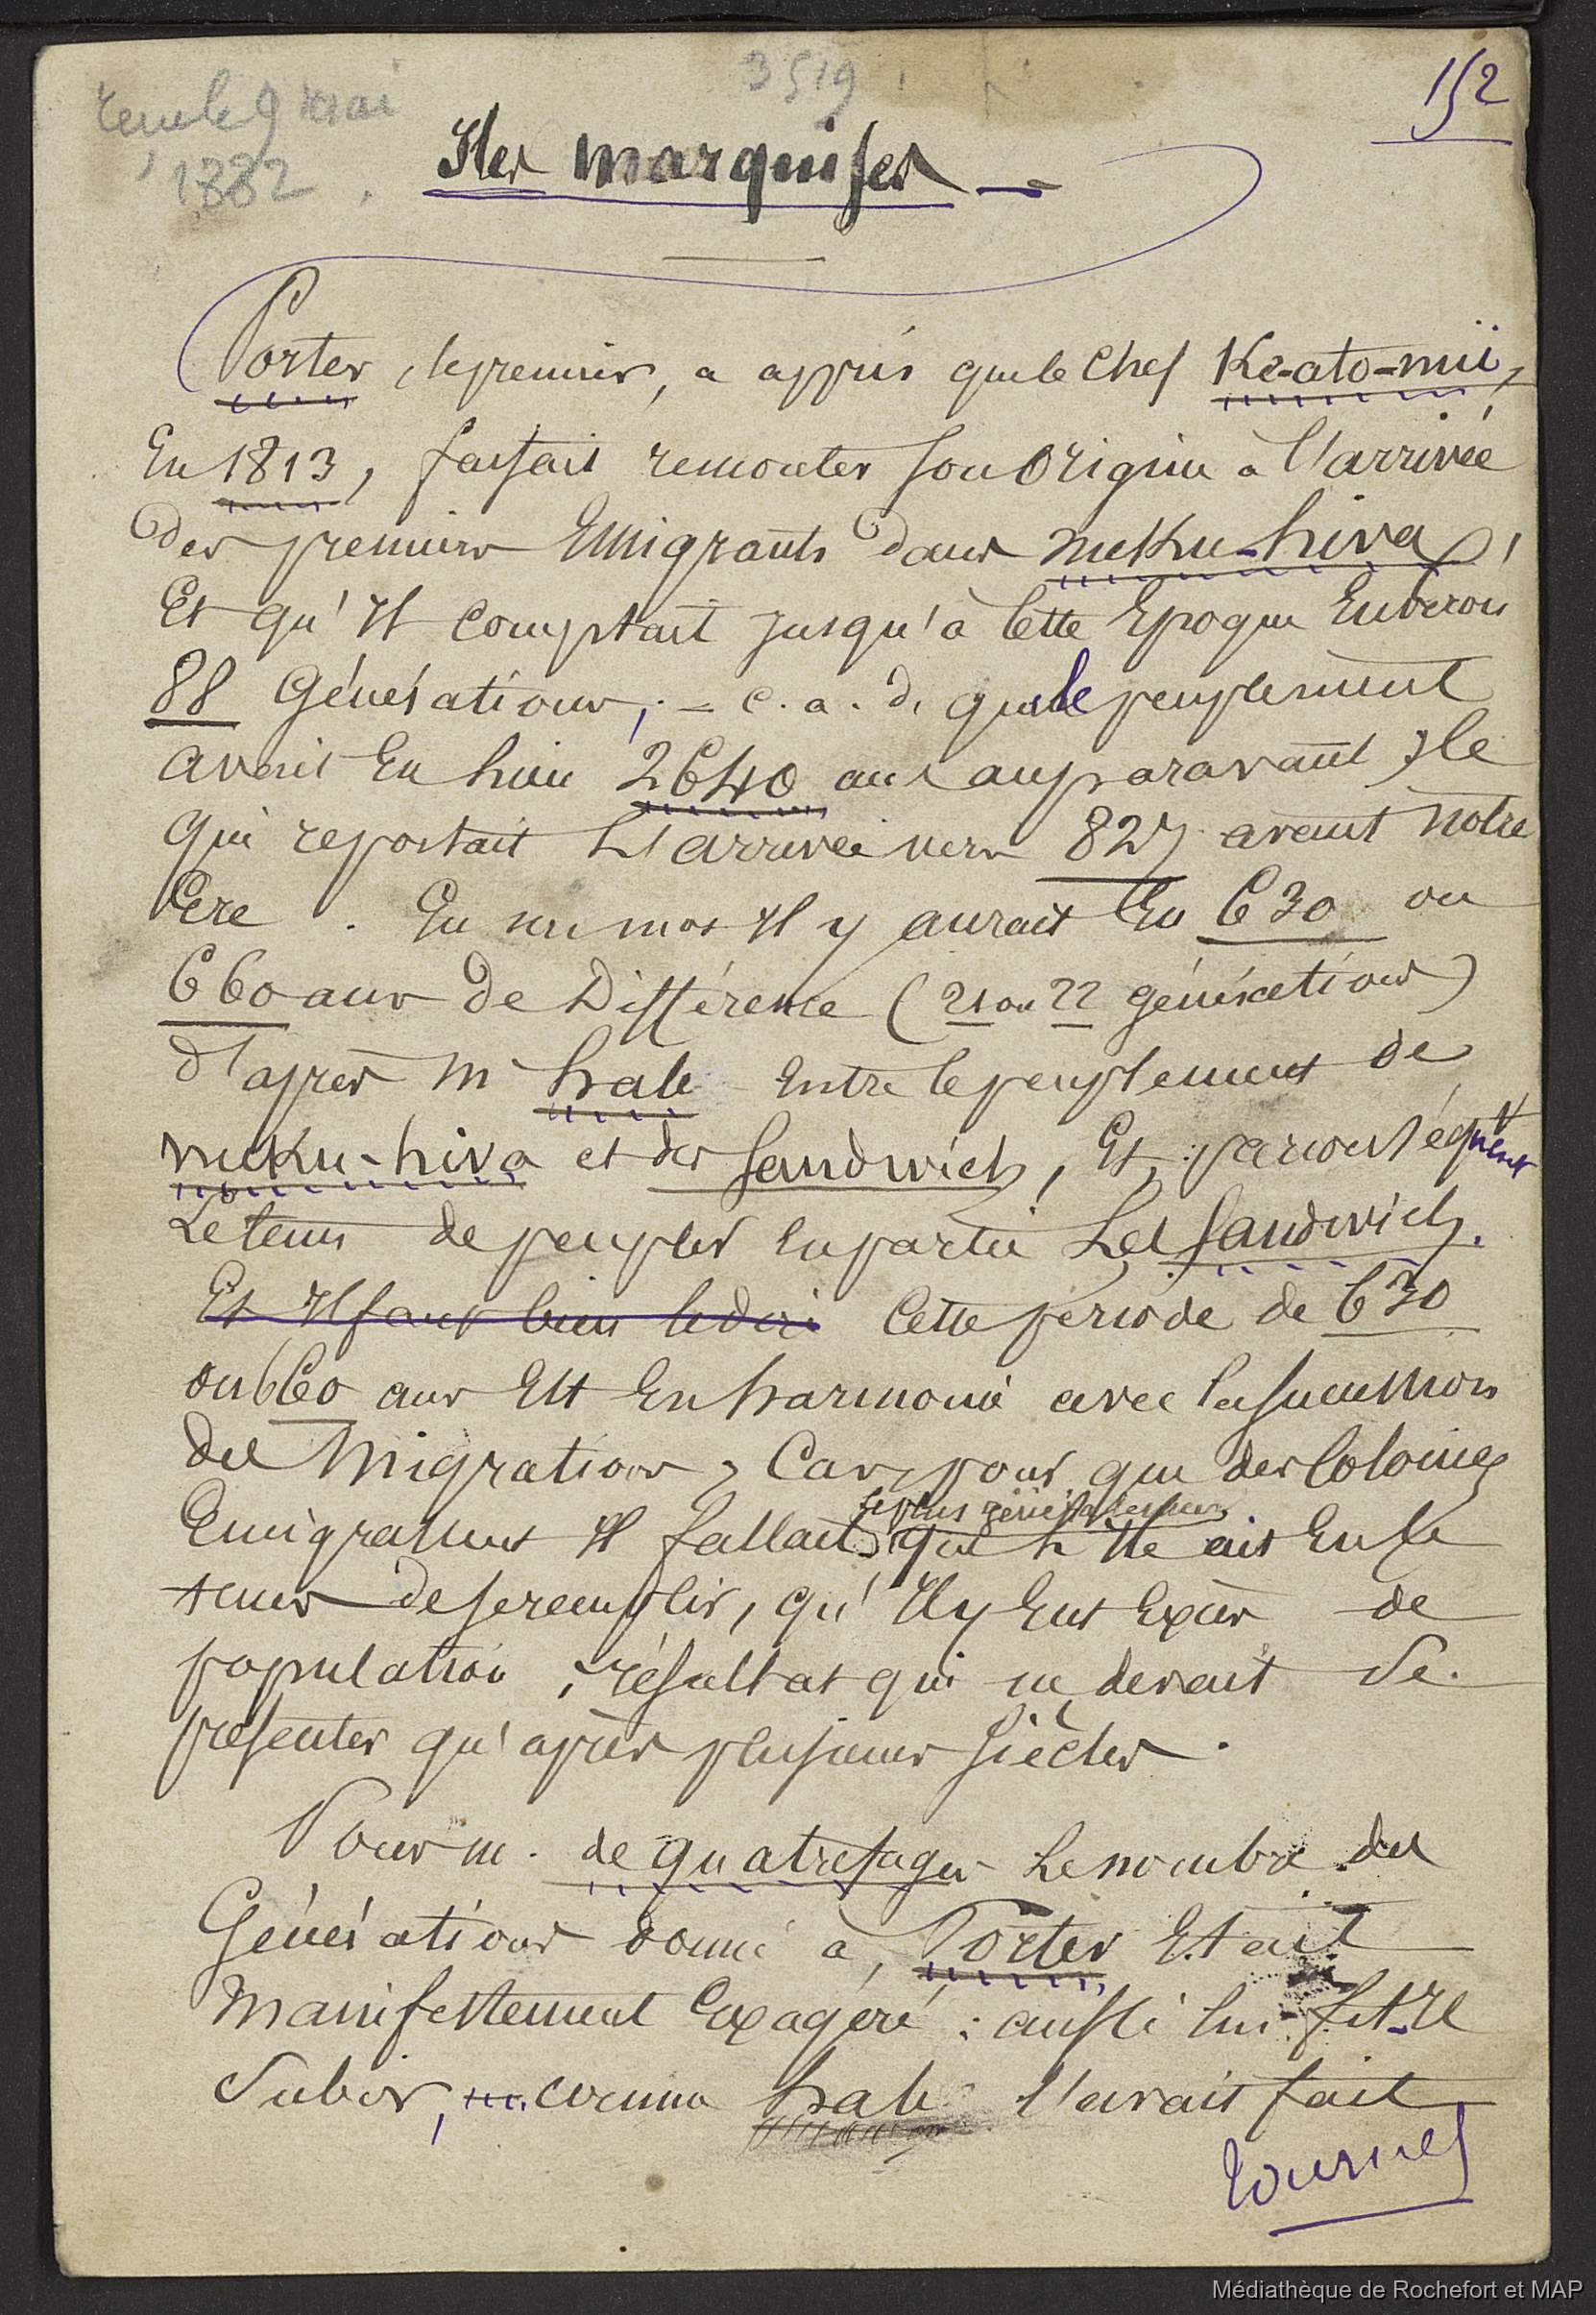 3519
152
1882.
Iles marquises —
Porter, le premier, a appris que le chef Ke-ato-nui,
En 1813, faisait remonter son origine à l'arrivée
des premiers Emigrants dans nuku-hiva,
Et qu'Il comptait jusqu'à cette Epoque Environ
88 Générations; = c. a. d. que le peuplement
avait Eu lieu 2640 ans auparavant, ce
qui reportait L'arrivée vers 827 avant notre
Ere. En un mot Il y aurait Eu 630 ou
660 ans de Différence (21 ou 22 générations)
d'après Mr hale entre le peuplement de
nuku-hiva et des Sandwich, Et, par conséquent
Le tems de peupler En partie Les Sandwich.
Et Il faut bien le dire Cette période de 630
ou 660 ans Est En harmonie avec la succession
des Migrations, Car, pour que des Colonies
le plus généralement
Emigrassent Il fallait que l'Ile ait Eu le
tems de se remplir, qu'Il y Eut Excès de
population, résultat qui ne devait se
présenter qu'après plusieurs siècles.
Pour M. de quatrefages Le nombre des
Générations donné à Porter Etait
Manifestement Exagéré : aussi lui fit-Il
Subir, comme hale l'avait fait
tournez
Médiathèque de Rochefort et MAP